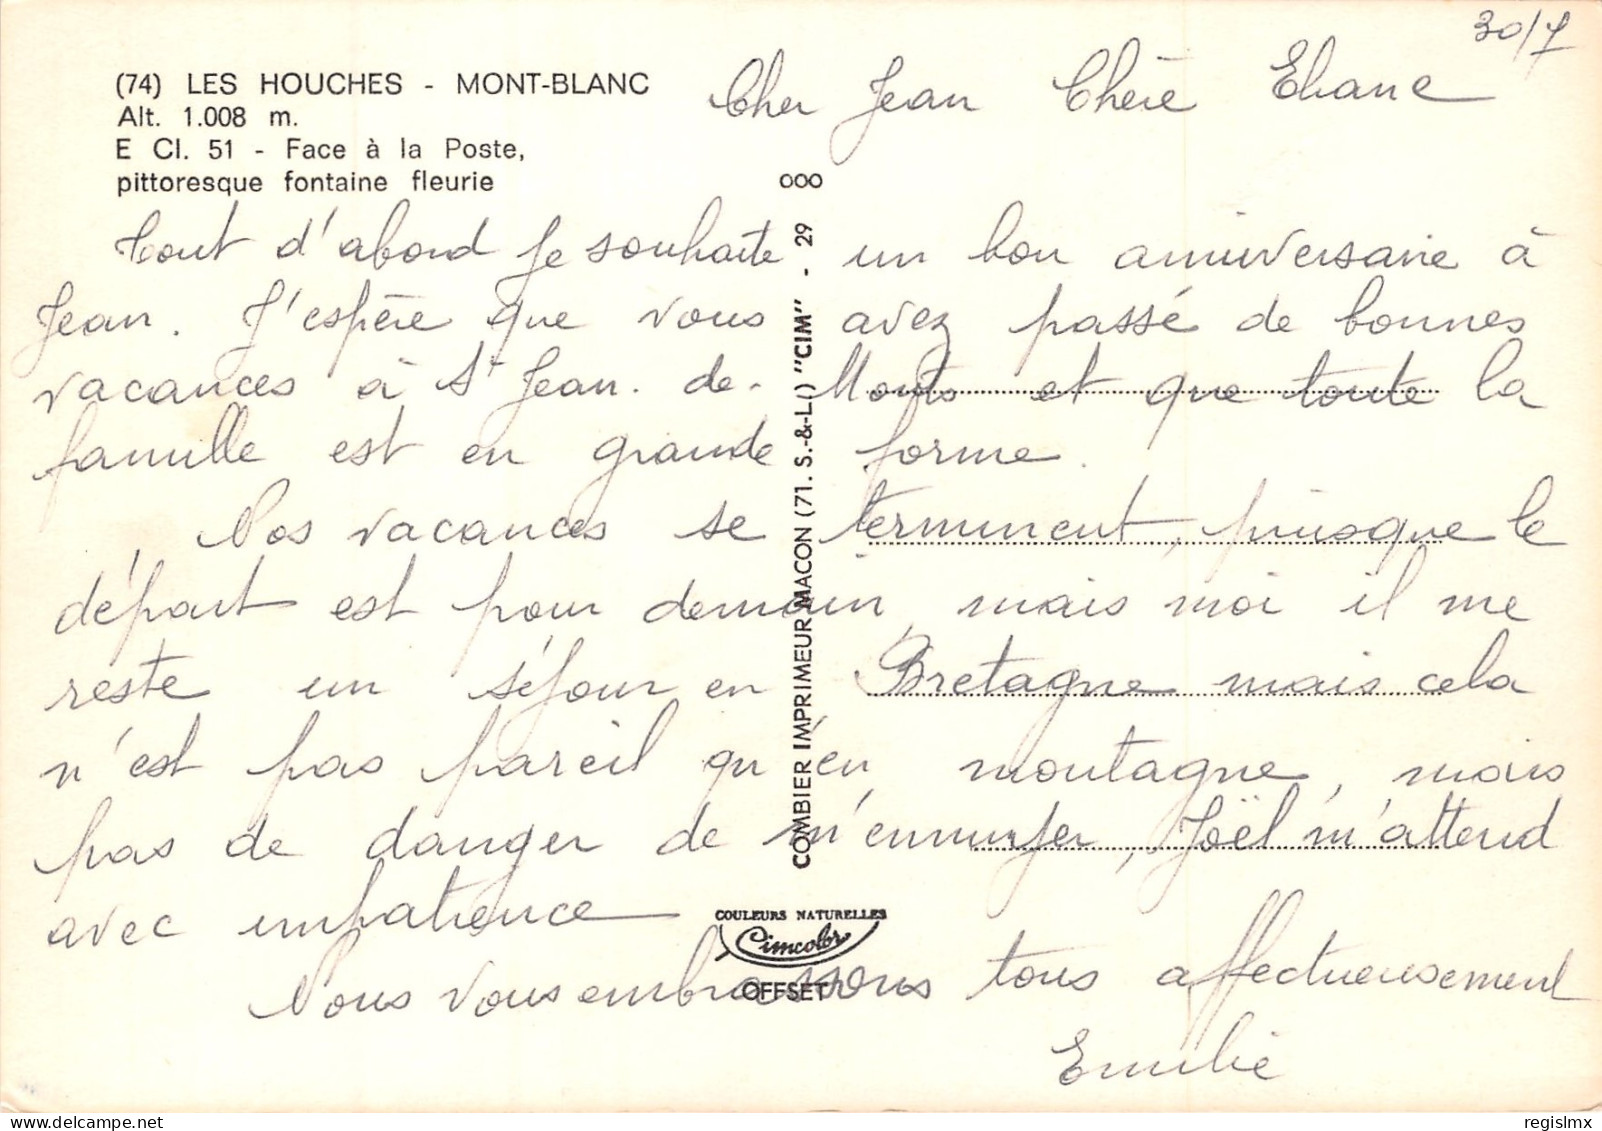 30/7
(74) LES HOUCHES - MONT-BLANC
Alt. 1.008 m.
E Cl. 51 - Face à la Poste,
pittoresque fontaine fleurie
Cher Jean Chère Eliane
Tout d'abord je souhaite un bon anniversaire à
Jean. J'espère que vous avez passé de bonnes
vacances à St Jean. de. Monts et que toute la
famille est en grande forme.
Nos vacances se terminent, puisque le
départ est pour demain, mais moi il me
reste un séjour en Bretagne mais cela
n'est pas pareil qu'en montagne, mais
pas de danger de m'ennuyer, Joël m'attend
avec impatience
Nous vous embrassons tous affectueusement
Emilie
COMBIER IMPRIMEUR MACON (71. S.-&-L.) "CIM" - 29 000
COULEURS NATURELLES
Cimcolor
OFFSET
regislmx